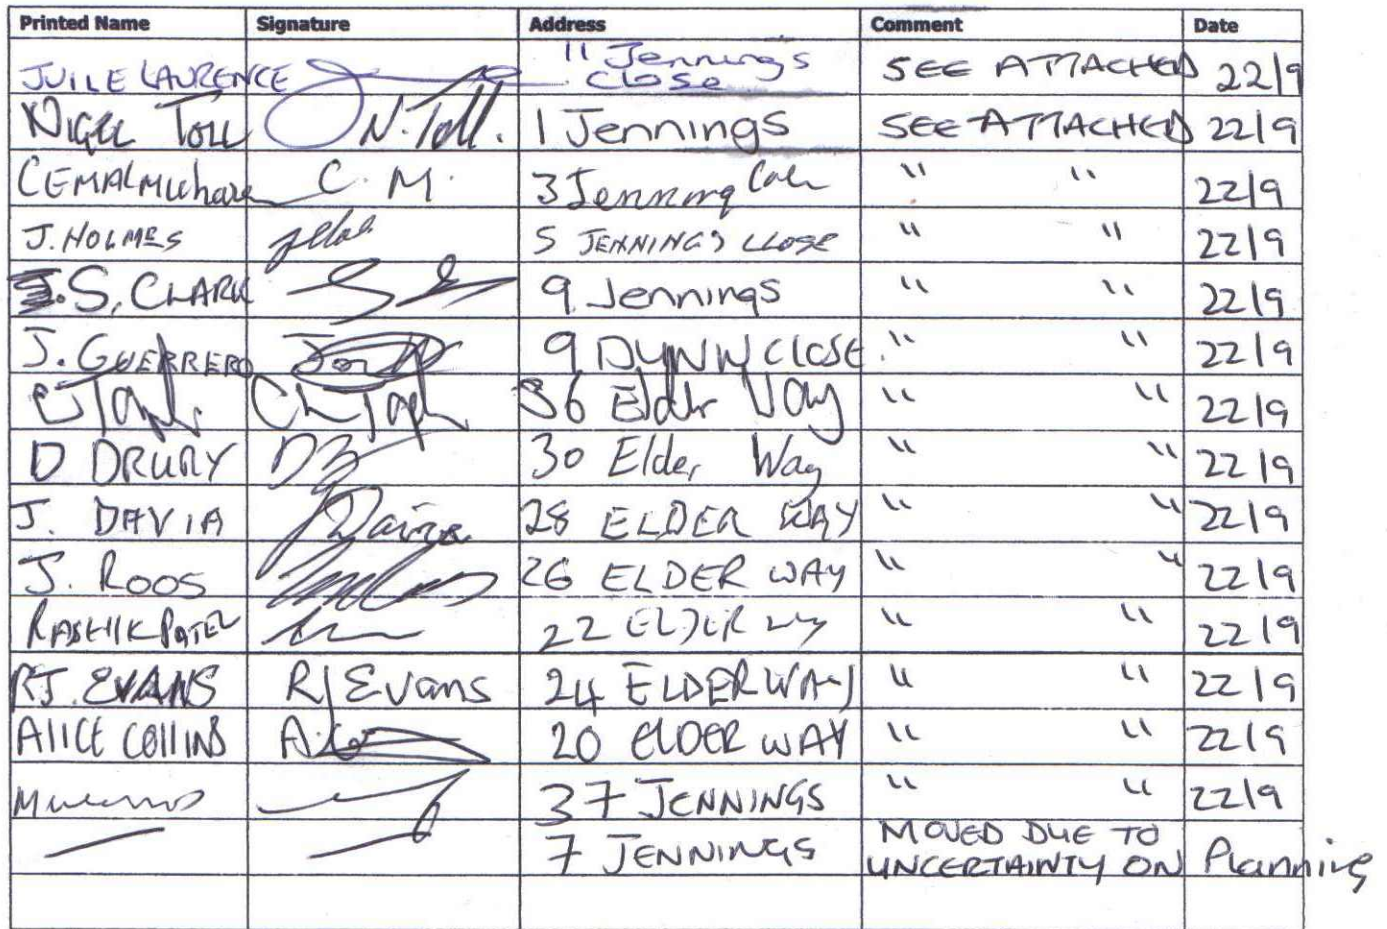 Printed Name Signature Address Comment Date
JUILE LAURENCE 11 Jennings Close SEE ATTACHED 22/9
NIGEL TOLL N. Toll. 1 Jennings SEE ATTACHED 22/9
CEMAL C. M. 3 Jenning " " 22/9
J. HOLMES 5 JENNINGS CLOSE " " 22/9
J.S. CLARK 9 Jennings " " 22/9
J. GUERRERO 9 DYNN CLOSE " " 22/9
36 Elder Way " " 22/9
D DRURY 30 Elder Way " " 22/9
J. DAVIA 28 ELDER WAY " " 22/9
J. ROOS 26 ELDER WAY " " 22/9
RASHIK PATEL 22 ELDER " " 22/9
RJ. EVANS RJ Evans 24 ELDER WAY " " 22/9
ALICE COLLINS 20 ELDER WAY " " 22/9
37 JENNINGS " " 22/9
7 JENNINGS MOVED DUE TO UNCERTAINTY ON Planning